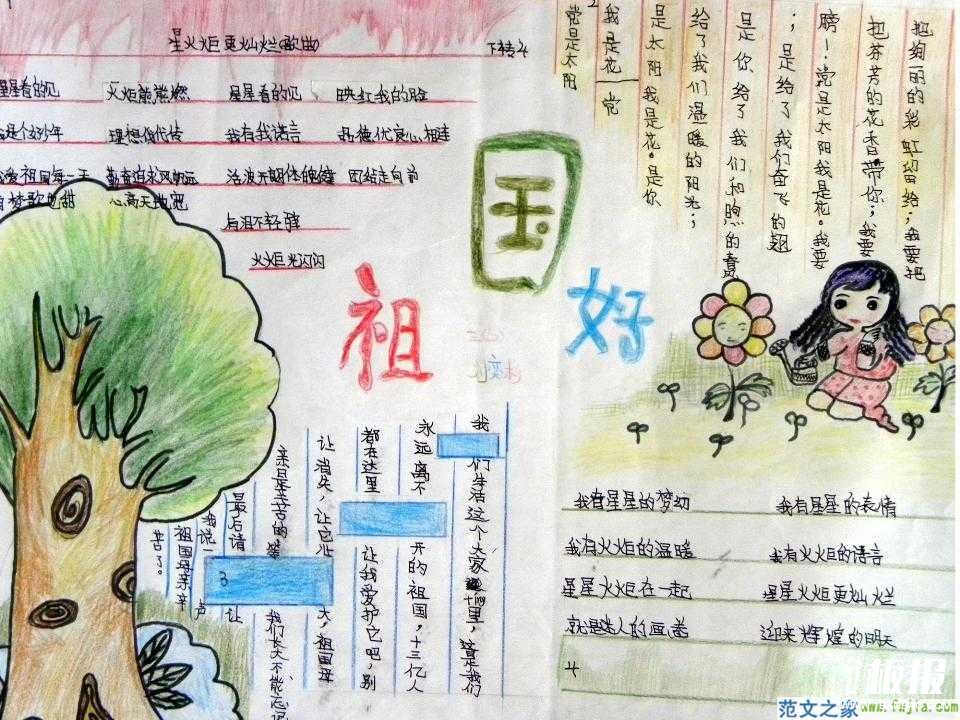 星火火炬更灿烂(歌曲)
下转4
星星看的见 火炬熊熊燃 星星看的见 映红我的脸
理想代代传 我有我诺言
爱祖国每一天 勤奋追求风帆远 活波开朗体魄健 团结走向前
梦歌也甜 心高天地宽
火火炬光闪闪
2
党是太阳
我是花 党
是太阳 我是花。是你
给了我们温暖的阳光；
是你给了我们和煦的春
；是给了我们奋飞的翅
膀！党是太阳我是花。我要
把芬芳的花香带你；我要
把绚丽的彩虹留给；我要把
祖
国
好
我们生活这个大家里，这是我们
永远离不开的祖国，十三亿人
都在这里 让我爱护它吧，别
让消失，让它 大，祖国母
亲是辛苦的 我们长大不能忘记
最后请 让
我说一声
祖国母亲辛
苦了。
3
我有星星的梦幻 我有星星的表情
我有火炬的温暖 我有火炬的语言
星星火炬在一起 星星火炬更灿烂
就是迷人的画卷 迎来辉煌的明天
4
范文之家